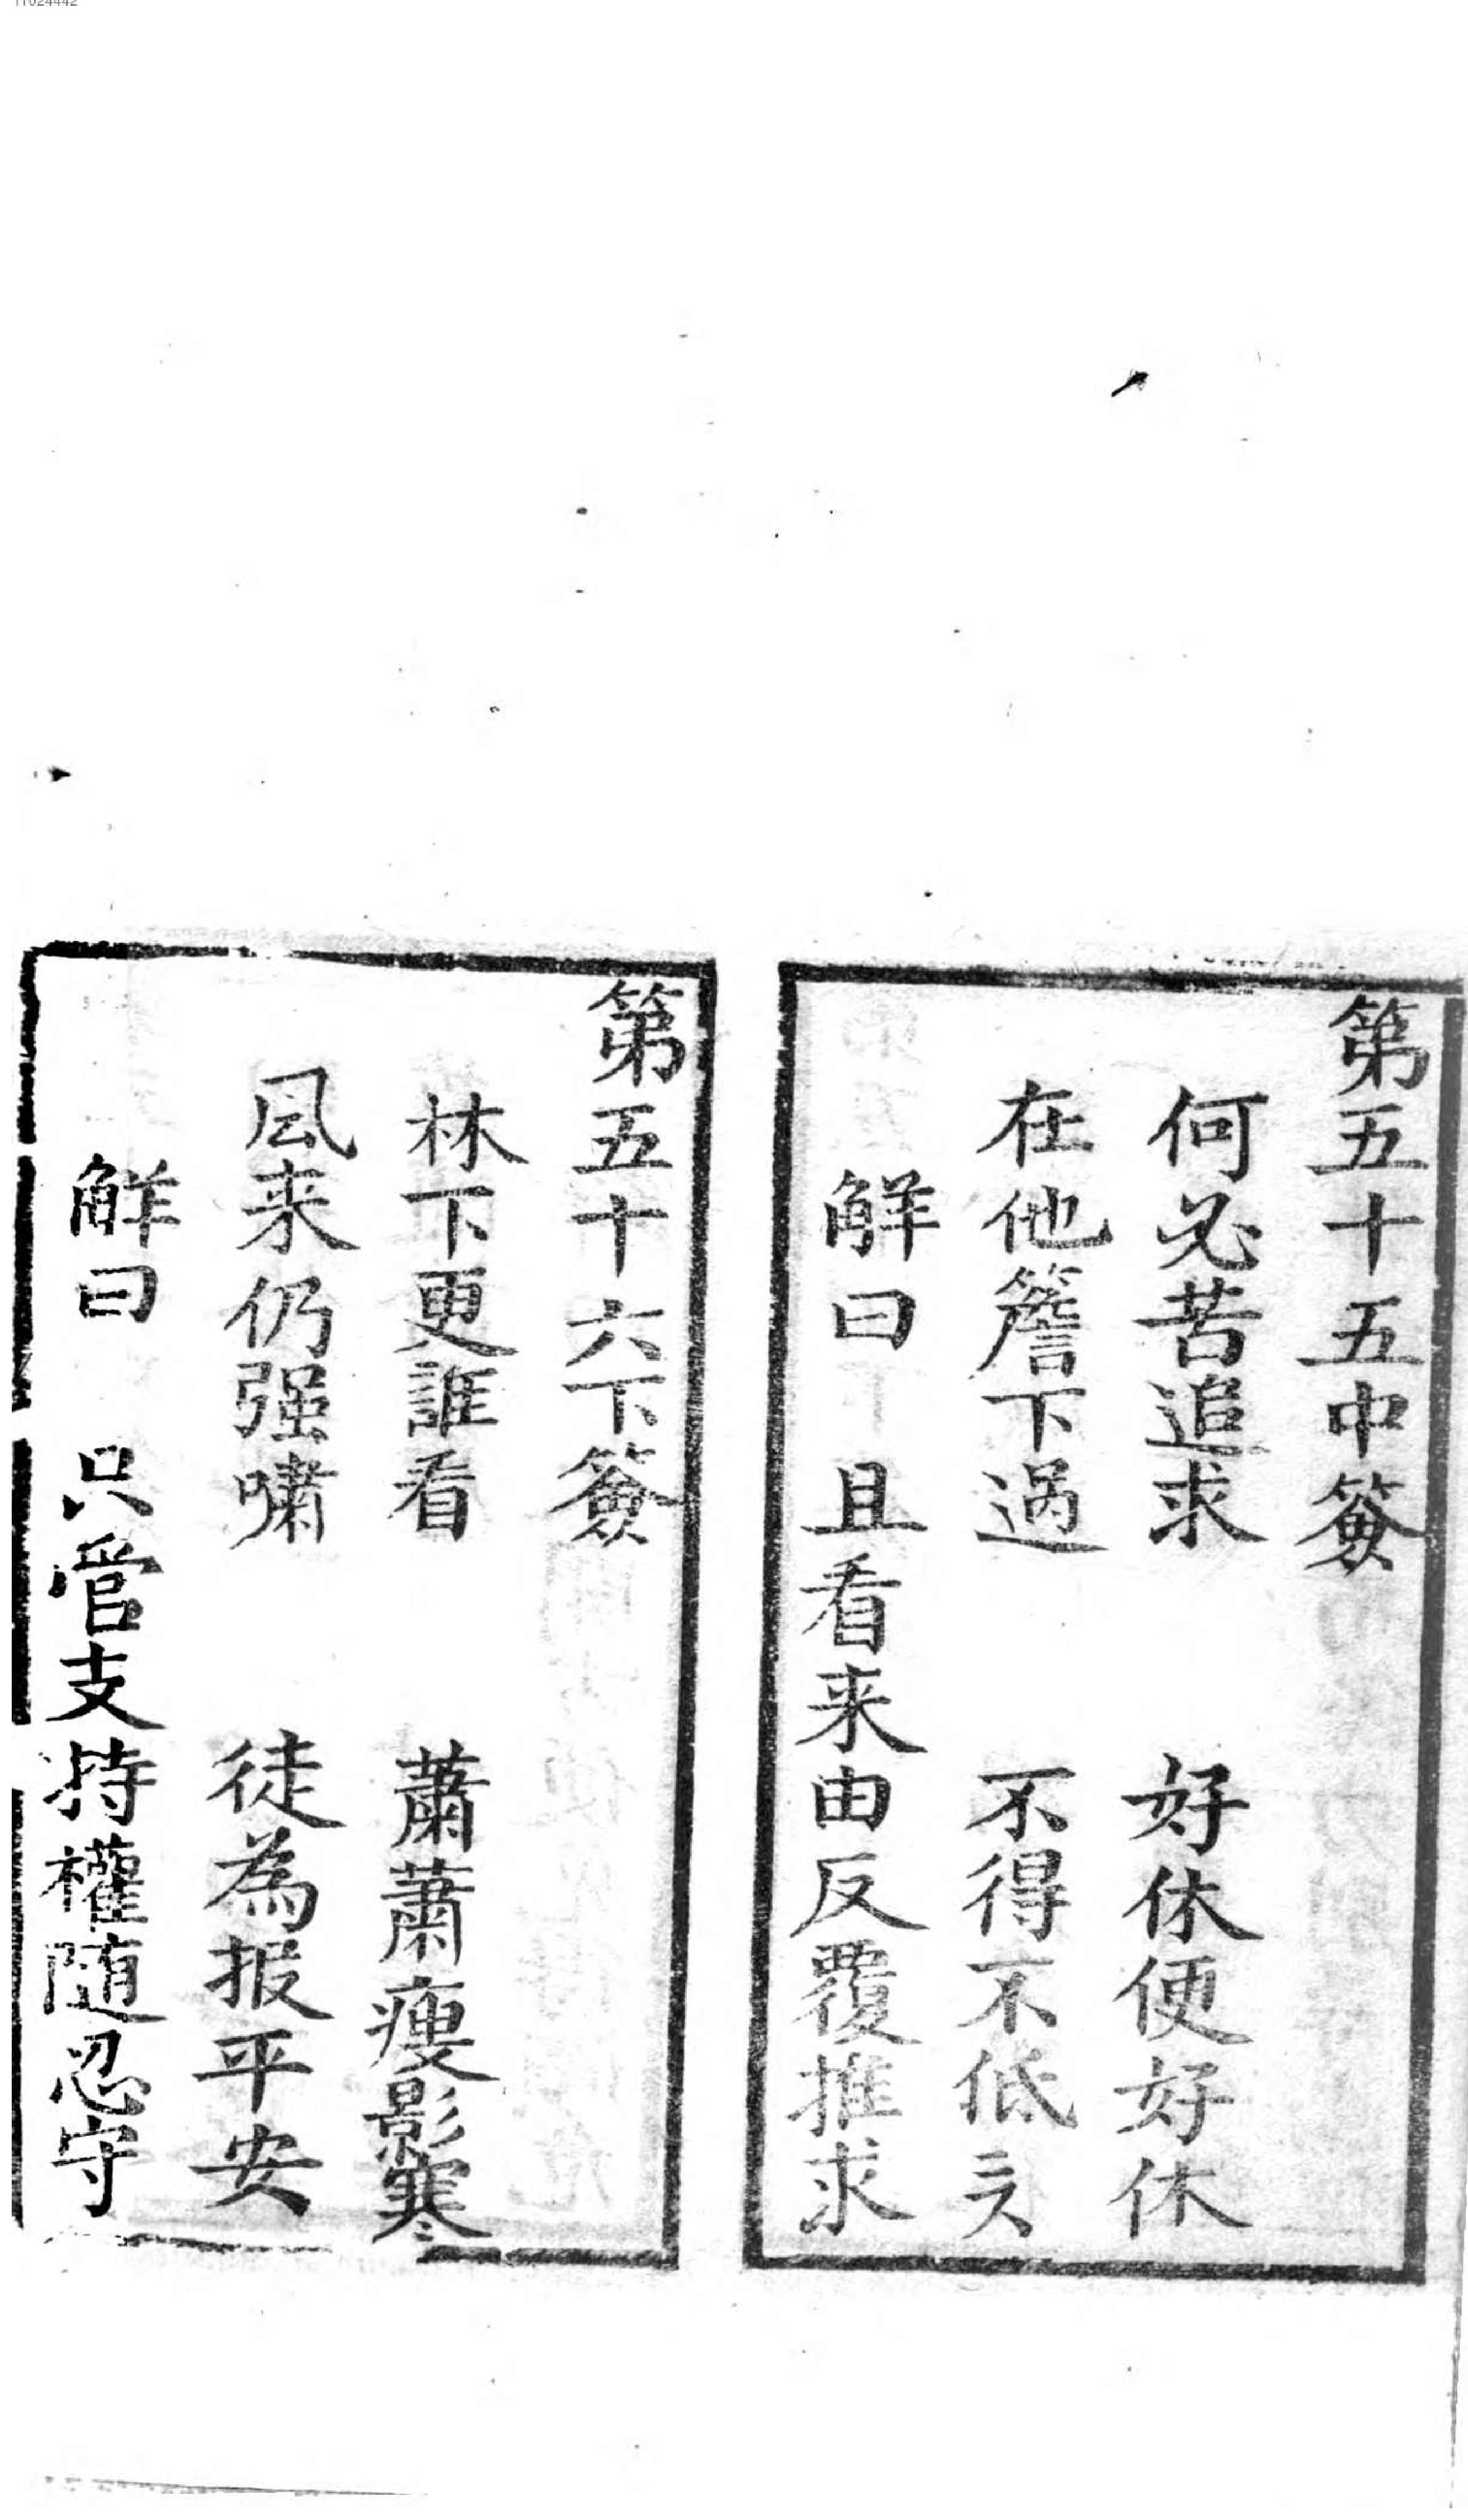 第五十五中簽
何必苦追求　好休便好休
在他簷下過　不得不低
解曰　且看来由反覆推求
第五十六下簽
林下更誰看　蕭蕭瘦影寒
风来仍强嘯　徒為报平安
解曰　只管支持權随忍守